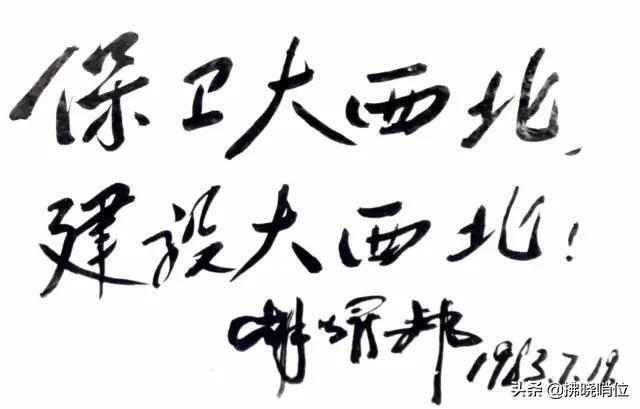 保卫大西北、
建设大西北！
胡耀邦
1983.7.19
头条 @拂晓哨位